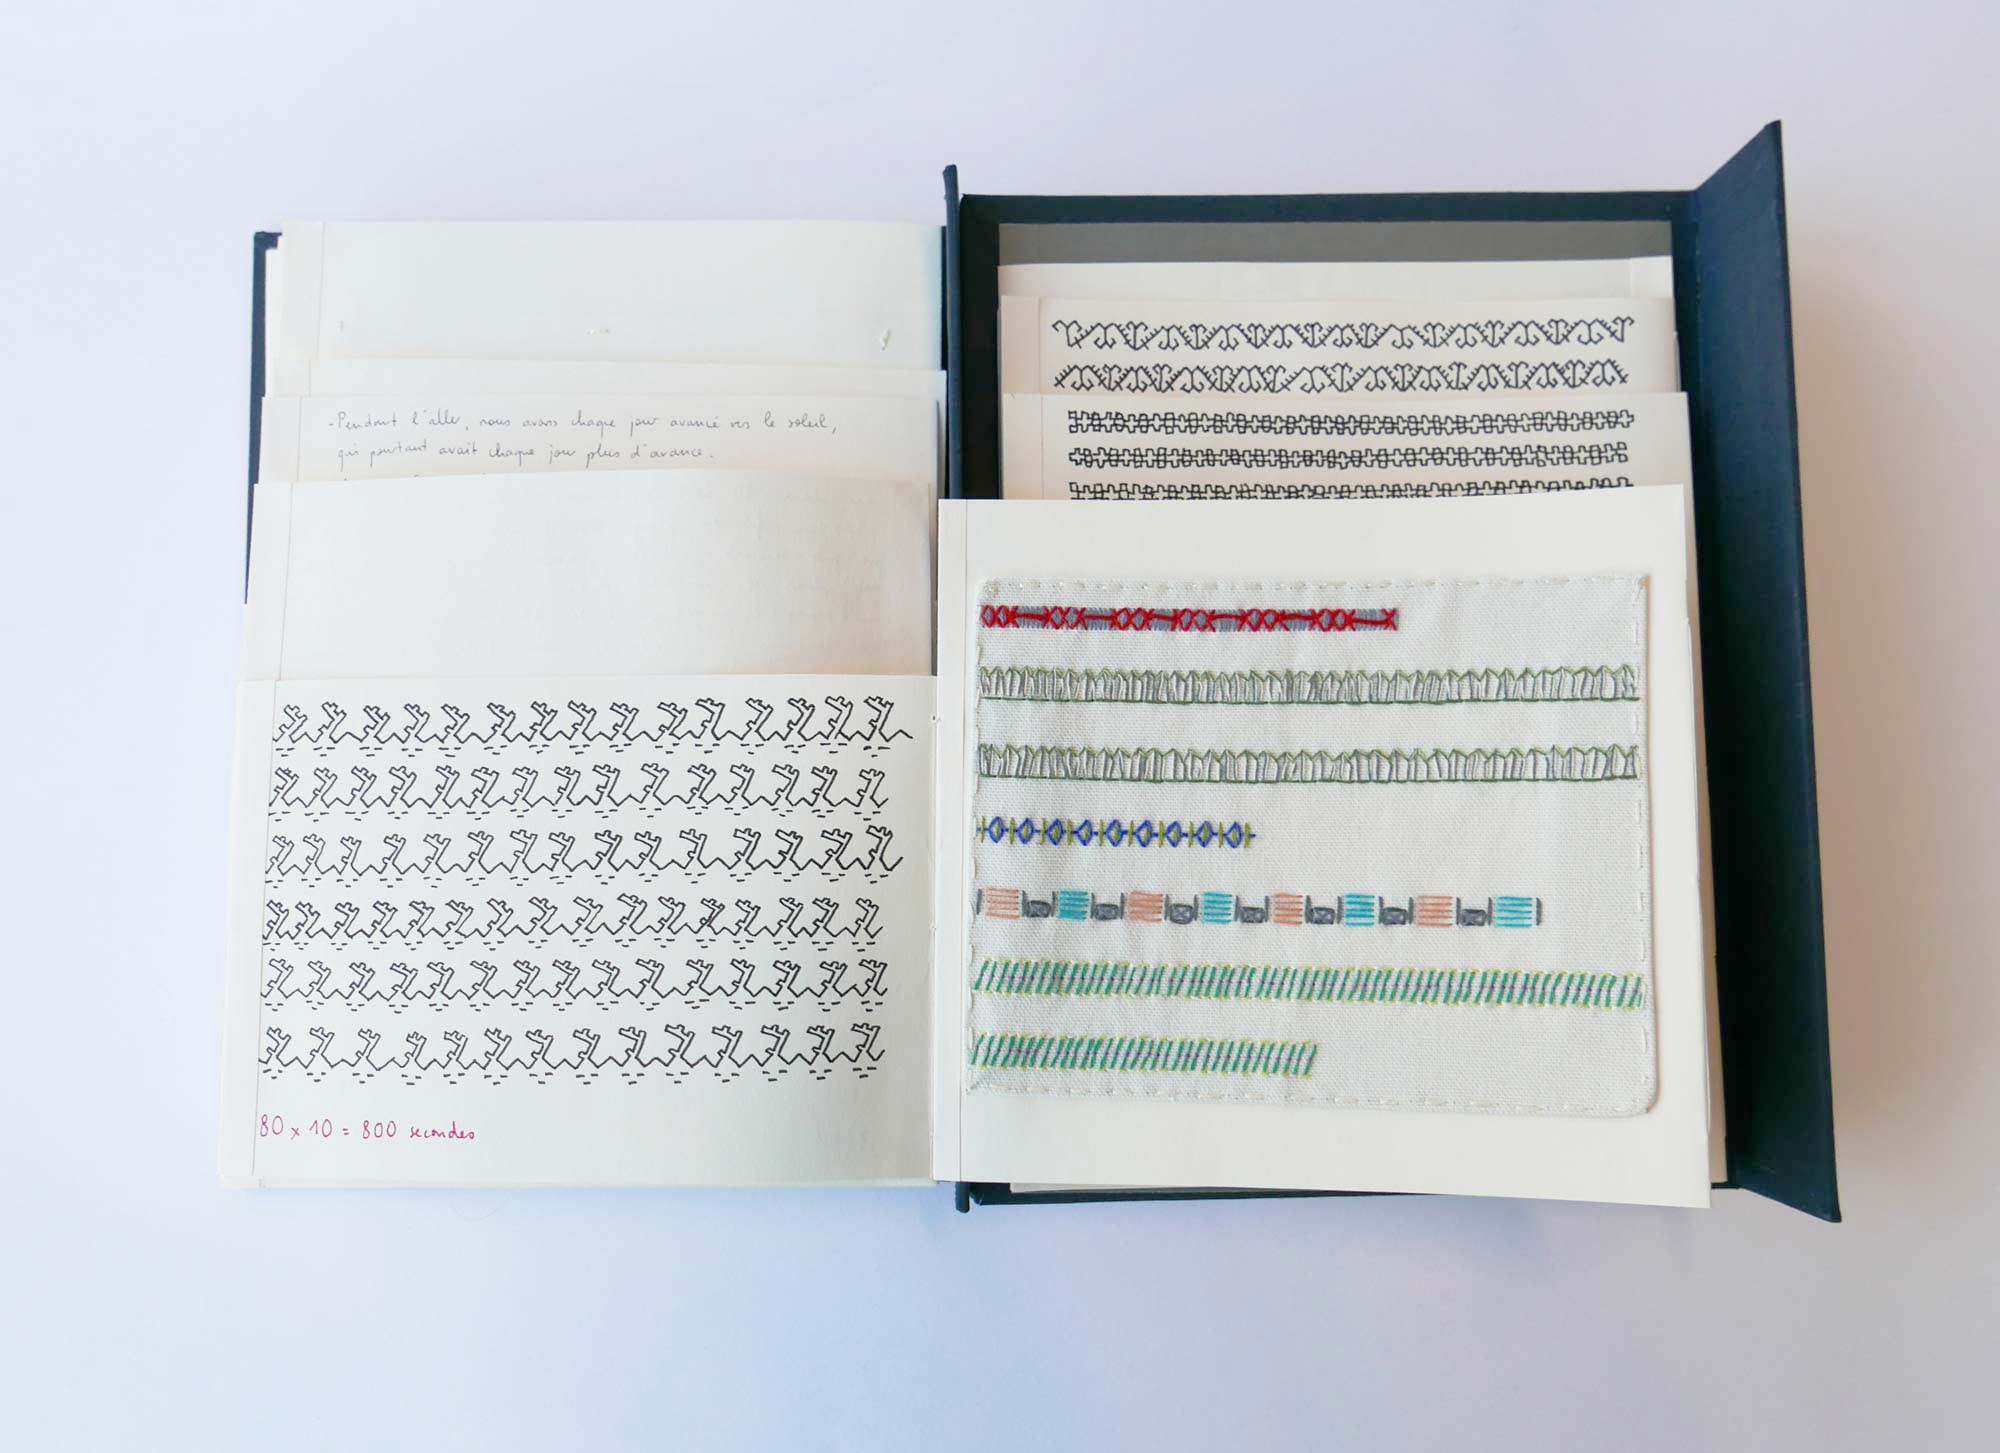 - Pendant l'aller, nous avons chaque jour avancé vers le soleil,
qui pourtant avait chaque jour plus d'avance.
80 x 10 = 800 secondes